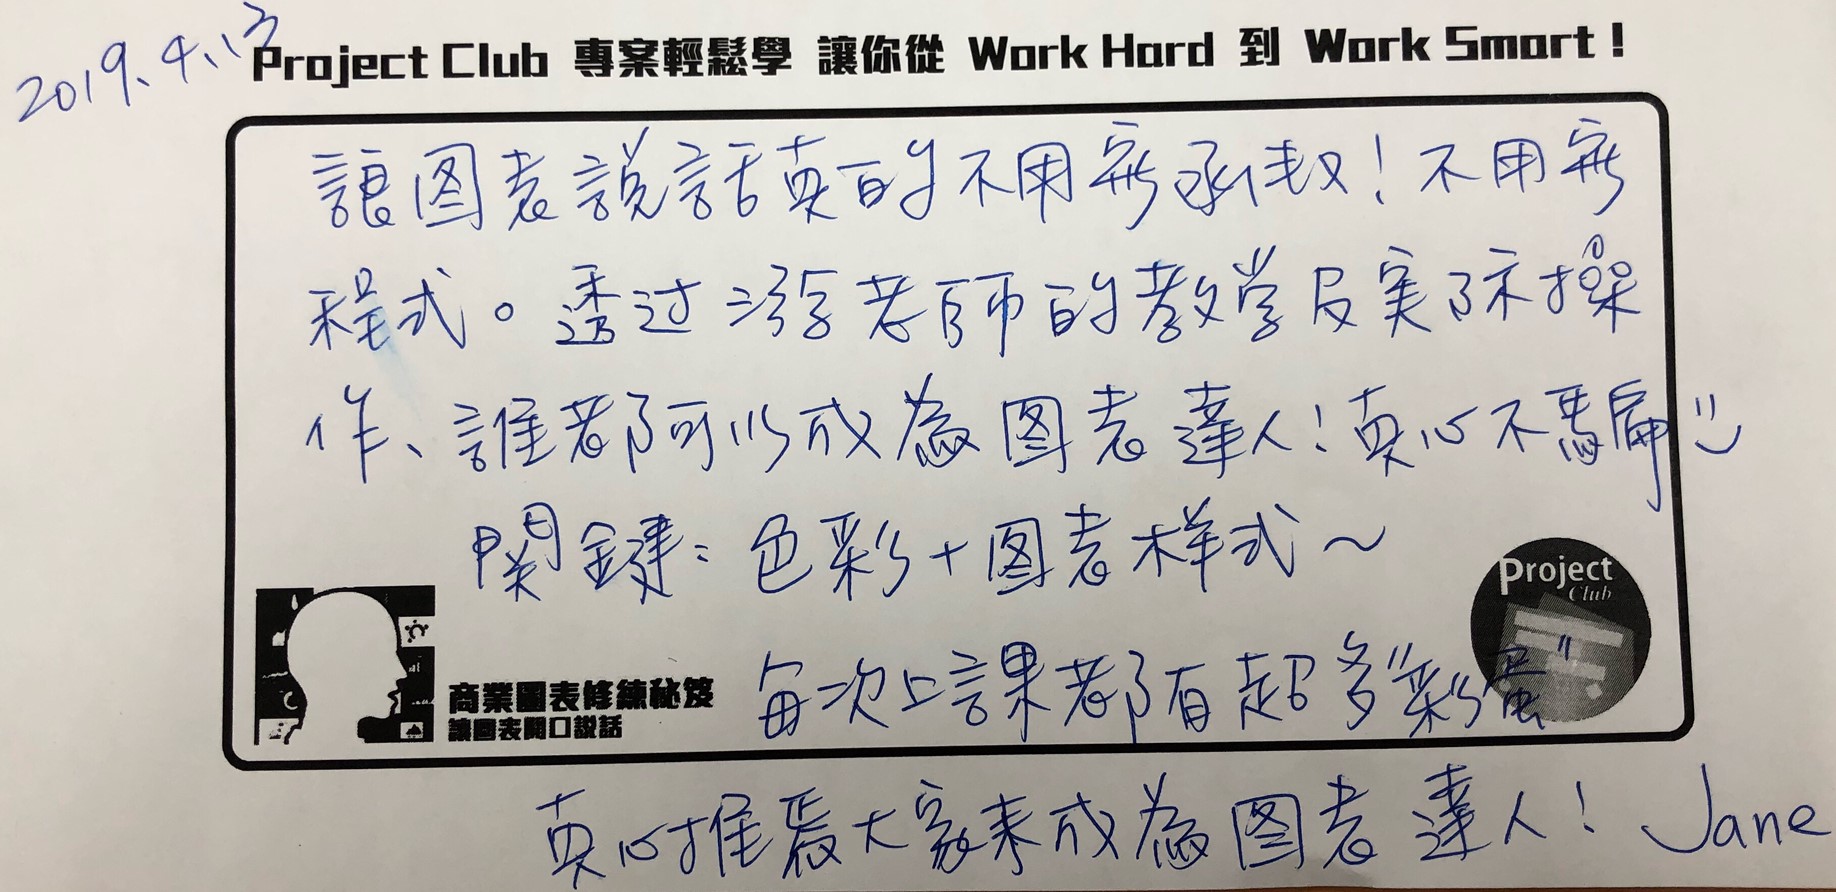 2019.4.13
Project Club 專案輕鬆學 讓你從 Work Hard 到 Work Smart!
讓图表說話真的不用寫函数!不用寫
程式。透过彭老師的教学及実际操
作、誰都可以成為图表達人!真心不騙
関鍵:色彩+图表样式~
每次上課都有超多"彩蛋"
商業圖表修練秘笈
讓圖表開口說話
Project
Club
真心推薦大家來成為图表達人! Jane